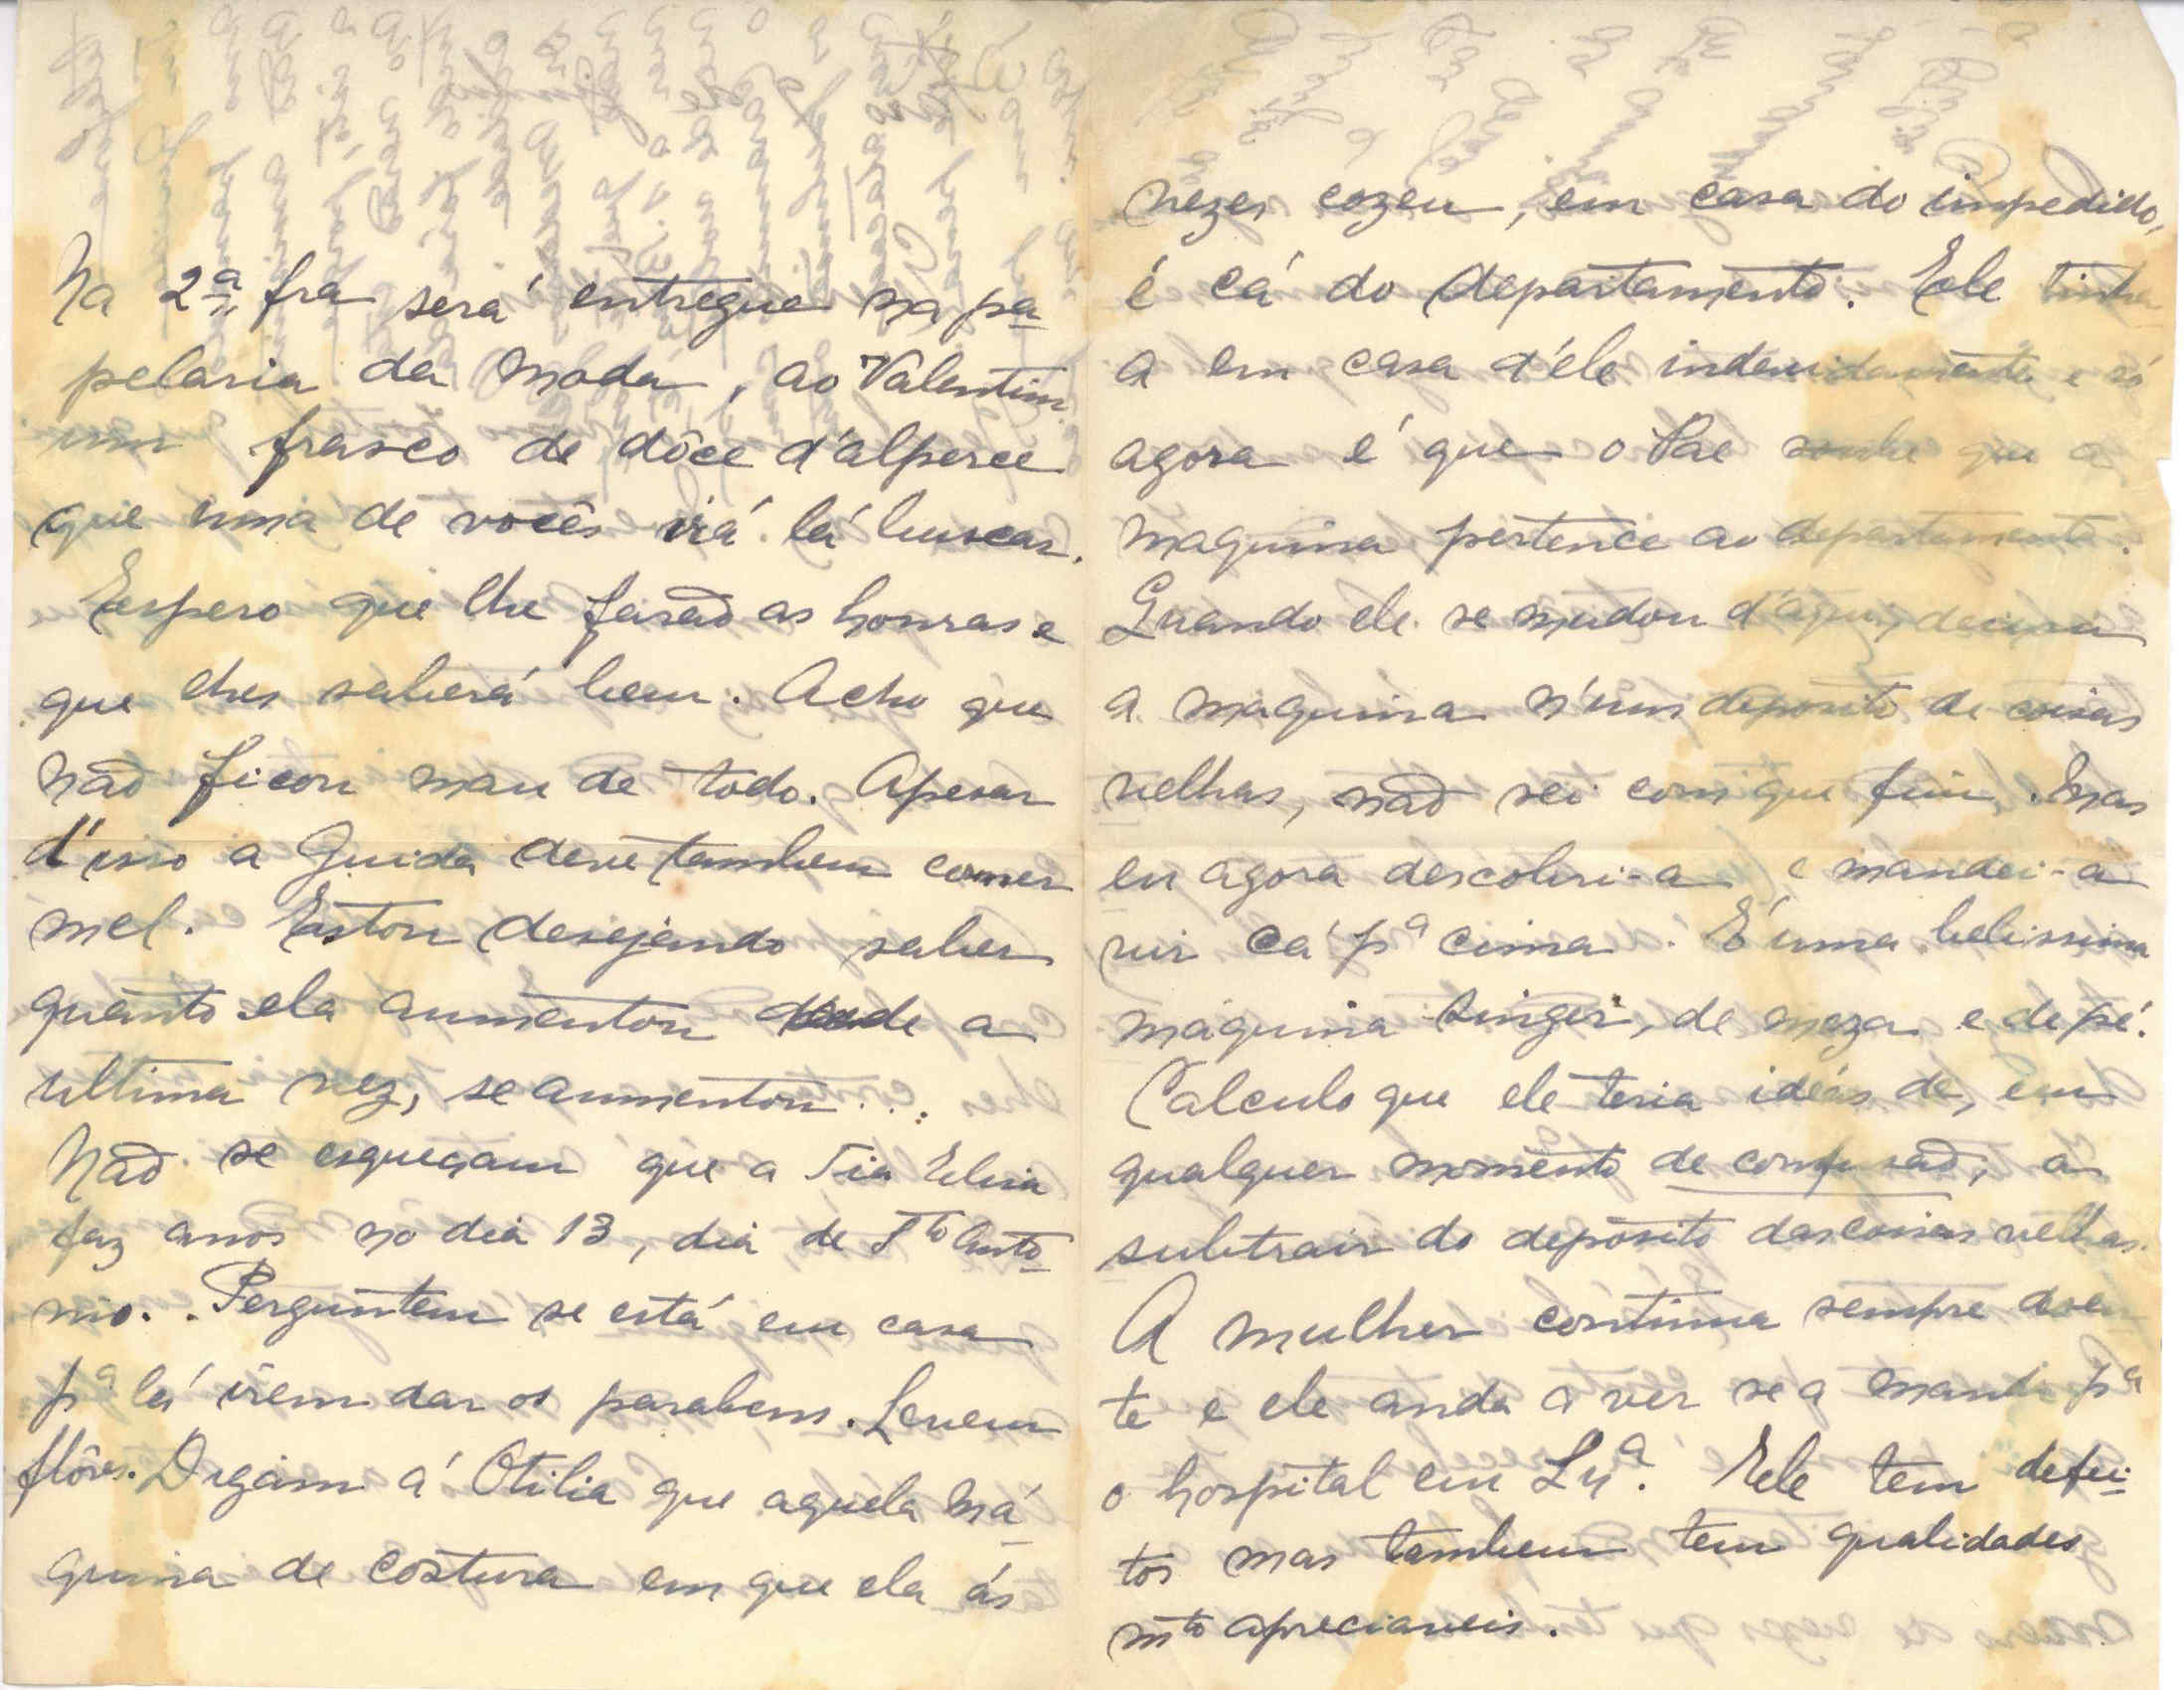 Na 2ª fra será entregue na pa-
pelaria da moda, ao Valentim
um frasco de dôce d'alperce
que uma de vocês irá lá buscar.
Espero que lhe farão as honras e
que lhes saberá bem. Acho que
não ficou mau de todo. Apesar
d'isso a Guida deve tambem comer
mel. Estou desejando saber
quanto ela aumentou desde a
ultima vez, se aumentou...
Não se esqueçam que a Tia Elisa
faz anos no dia 13, dia de Sto Anto-
nio. Perguntem se está em casa
pª lá irem dar os parabens. Levem
flôres. Digam á Otilia que aquela má-
quina de costura em que ela ás
vezes cozeu, em casa do impedido,
é cá do departamento. Ele tinha-
a em casa d'ele indevidamente e só
agora é que o Pae soube que a
maquina pertence ao departamento.
Quando ele se mudou d'aqui, deixou
a maquina n'um deposito de coisas
velhas, não sei com que fim. Mas
eu agora descobri-a e mandei-a
vir cá pª cima. É uma belissima
máquina Singer, de meza e de pé.
Calculo que ele teria idéas de, em
qualquer momento de confusão, a
subtrair do depósito das coisas velhas.
A mulher continua sempre doen-
te e ele anda a ver se a manda pª
o hospital em Lxª. Ele tem defei-
tos mas tambem tem qualidades
mto apreciaveis.